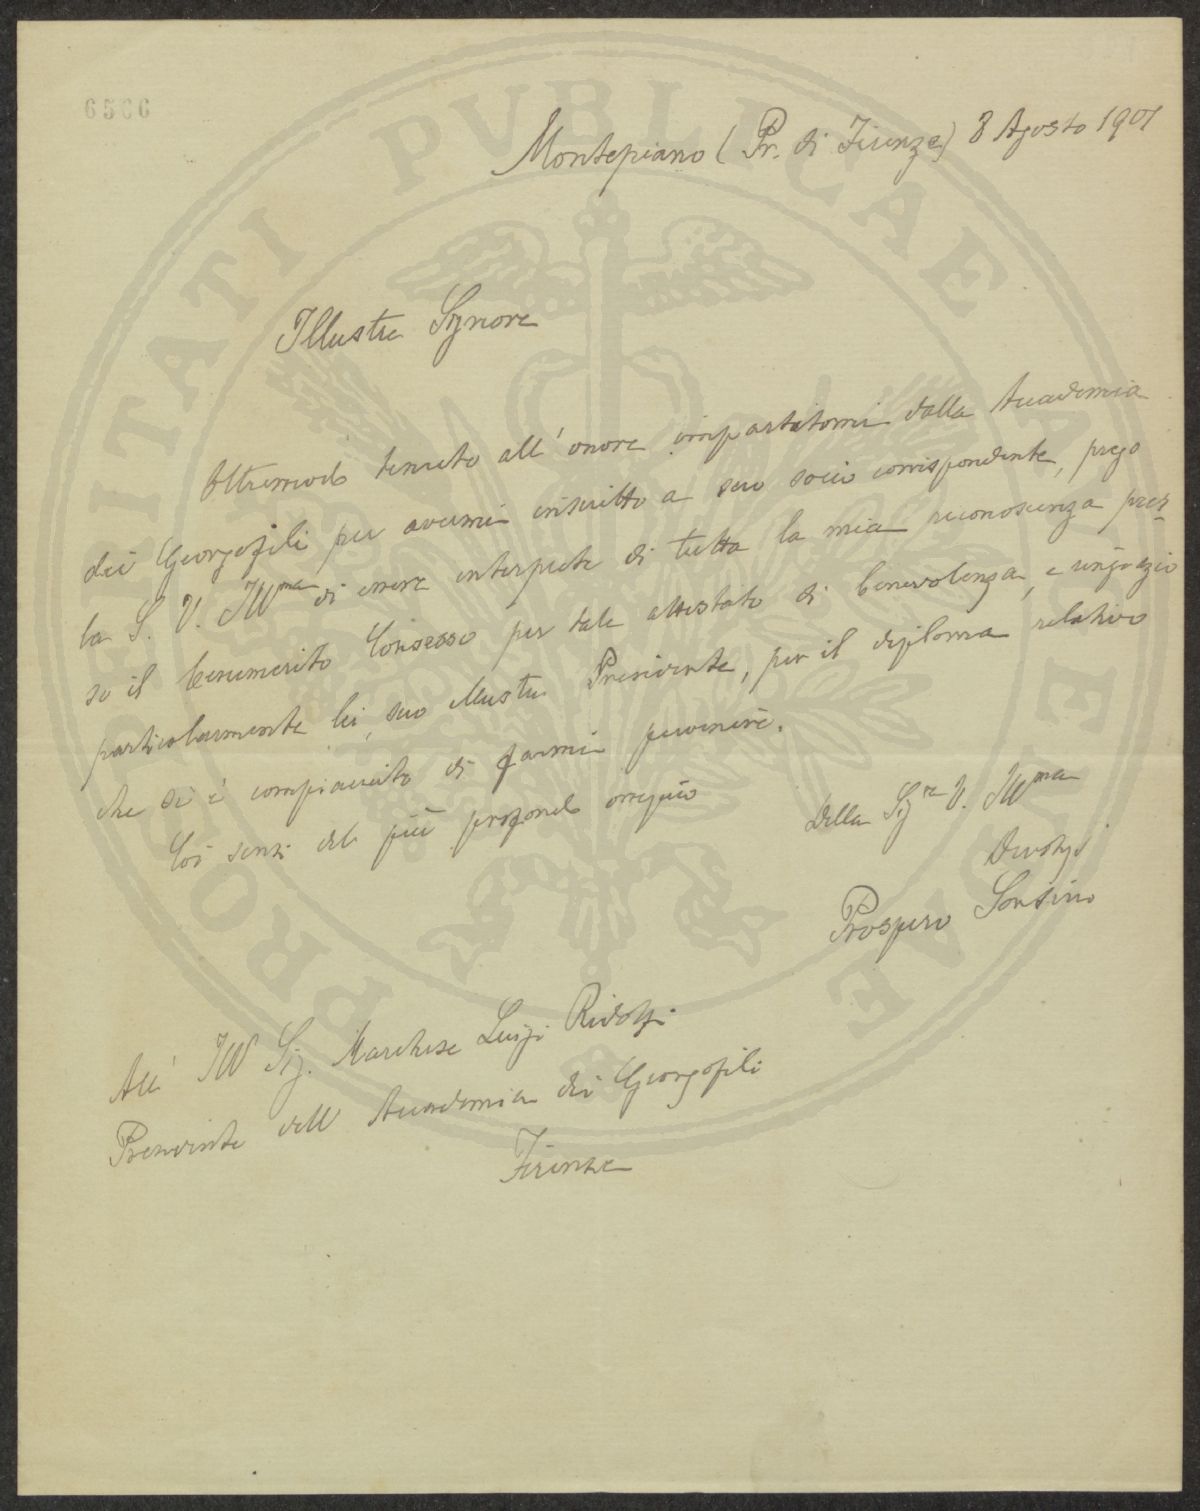 6566
Montepiano (Pr. di Firenze) 8 Agosto 1901
Illustre Signore
Oltremodo tenuto all'onore impartitomi dalla Accademia
dei Georgofili per avermi inscritto a suo socio corrispondente, prego
la S. V. Ill^ma di essere interprete di tutta la mia riconoscenza pres-
so il benemerito Consesso per tale attestato di benevolenza, e ringrazio
particolarmente lei, suo illustre Presidente, per il diploma relativo
che si è compiaciuto di farmi pervenire.
Coi sensi del più profondo ossequio
Della Sig^re V. Ill^ma
Prospero Sonsino
All' Ill Sig. Marchese Luigi Ridolfi
Presidente dell' Accademia dei Georgofili
Firenze
PROSPERITATI PVBLICAE AVGENDAE